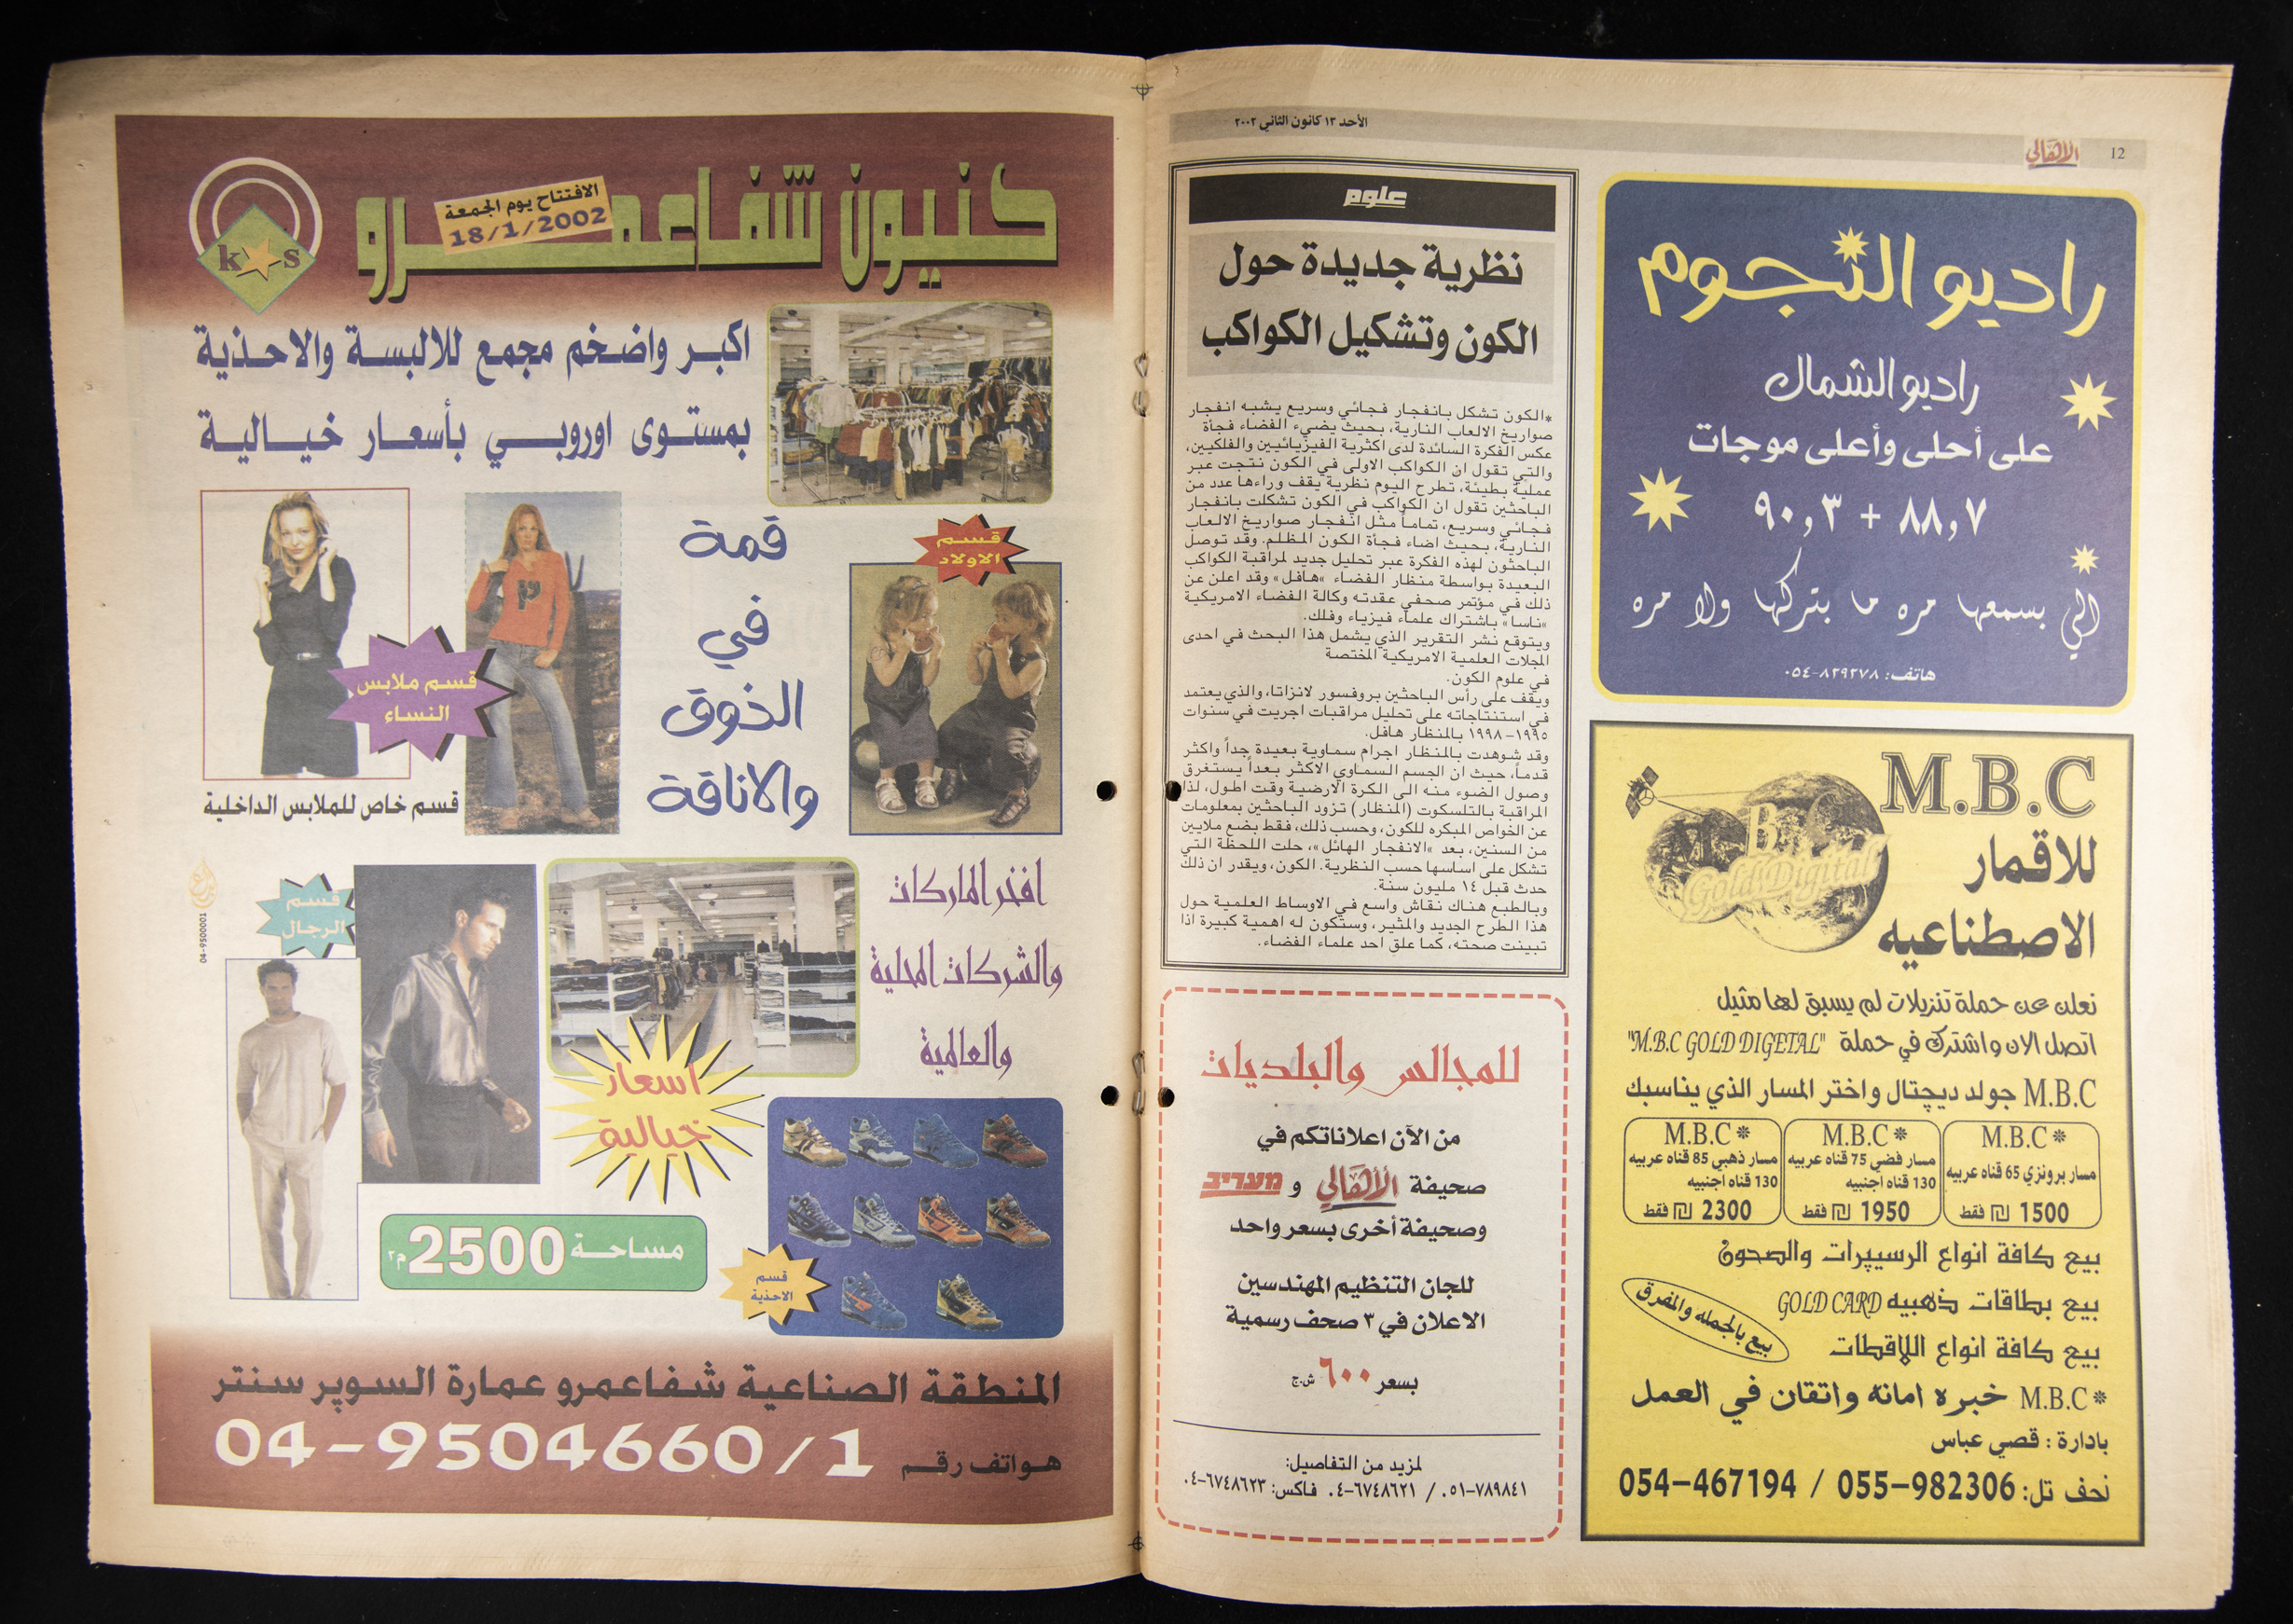 12
الأهالي
الأحد ١٣ كانون الثاني ٢٠٠٢
راديو النجوم
راديو الشمال
على أحلى وأعلى موجات
٨٨,٧ + ٩٠,٣
الي بسمعها مره ما بتركها ولا مره
هاتف: ٨٣٩٢٧٨-٠٥٤
M.B.C
للاقمار
الاصطناعيه
M B C
Gold Digital
نعلن عن حملة تنزيلات لم يسبق لها مثيل
اتصل الان واشترك في حملة "M.B.C GOLD DIGETAL"
M.B.C جولد ديچتال واختر المسار الذي يناسبك
* M.B.C
مسار برونزي 65 قناه عربيه
1500 ₪ فقط
* M.B.C
مسار فضي 75 قناه عربيه
130 قناه اجنبيه
1950 ₪ فقط
* M.B.C
مسار ذهبي 85 قناه عربيه
130 قناه اجنبيه
2300 ₪ فقط
بيع كافة انواع الرسيڤرات والصحون
بيع بطاقات ذهبيه GOLD CARD
بيع كافة انواع اللاقطات
بيع بالجمله والمفرق
* M.B.C خبره امانه واتقان في العمل
بادارة : قصي عباس
نحف تل: 055-982306 / 054-467194
علوم
نظرية جديدة حول
الكون وتشكيل الكواكب
*الكون تشكل بانفجار فجائي وسريع يشبه انفجار
صواريخ الالعاب النارية، بحيث يضيء الفضاء فجأة
عكس الفكرة السائدة لدى أكثرية الفيزيائيين والفلكيين،
والتي تقول ان الكواكب الاولى في الكون نتجت عبر
عملية بطيئة، تطرح اليوم نظرية يقف وراءها عدد من
الباحثين تقول ان الكواكب في الكون تشكلت بانفجار
فجائي وسريع، تماماً مثل انفجار صواريخ الالعاب
النارية، بحيث اضاء فجأة الكون المظلم. وقد توصل
الباحثون لهذه الفكرة عبر تحليل جديد لمراقبة الكواكب
البعيدة بواسطة منظار الفضاء «هافل» وقد اعلن عن
ذلك في مؤتمر صحفي عقدته وكالة الفضاء الامريكية
«ناسا» باشتراك علماء فيزياء وفلك.
ويتوقع نشر التقرير الذي يشمل هذا البحث في احدى
المجلات العلمية الامريكية المختصة
في علوم الكون.
ويقف على رأس الباحثين بروفسور لانزاتا، والذي يعتمد
في استنتاجاته على تحليل مراقبات اجريت في سنوات
١٩٩٥-١٩٩٨ بالمنظار هافل.
وقد شوهدت بالمنظار اجرام سماوية بعيدة جداً واكثر
قدماً، حيث ان الجسم السماوي الاكثر بعداً يستغرق
وصول الضوء منه الى الكرة الارضية وقت اطول، لذا
المراقبة بالتلسكوت (المنظار) تزود الباحثين بمعلومات
عن الخواص المبكره للكون، وحسب ذلك، فقط بضع ملايين
من السنين، بعد «الانفجار الهائل»، حلت اللحظة التي
تشكل على اساسها حسب النظرية. الكون، ويقدر ان ذلك
حدث قبل ١٤ مليون سنة.
وبالطبع هناك نقاش واسع في الاوساط العلمية حول
هذا الطرح الجديد والمثير، وستكون له اهمية كبيرة اذا
تبينت صحته، كما علق احد علماء الفضاء.
للمجالس والبلديات
من الآن اعلاناتكم في
صحيفة الأهالي و מעריב
وصحيفة أخرى بسعر واحد
للجان التنظيم المهندسين
الاعلان في ٣ صحف رسمية
بسعر ٦٠٠ ش.ج
لمزيد من التفاصيل:
٠٥١-٧٨٩٨٤١ / ٠٤-٦٧٤٨٦٢١ فاكس: ٠٤-٦٧٤٨٦٢٣
كنيون شفاعمرو
الافتتاح يوم الجمعة
18/1/2002
k s
اكبر واضخم مجمع للالبسة والاحذية
بمستوى اوروبي بأسعار خيالية
قسم
الاولاد
قمة
في
الذوق
والاناقة
قسم ملابس
النساء
قسم خاص للملابس الداخلية
افخر الماركات
والشركات المحلية
والعالمية
قسم
الرجال
04-9500001
اسعار
خيالية
مساحة 2500 م٢
قسم
الاحذية
المنطقة الصناعية شفاعمرو عمارة السوبر سنتر
هواتف رقم 04-9504660/1